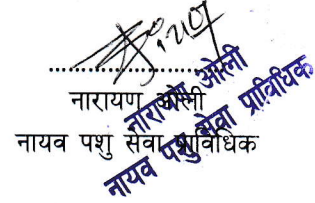 नारायण ओली
नायव पशु सेवा प्राविधिक
नारायण ओली
नायव पशु सेवा प्राविधिक